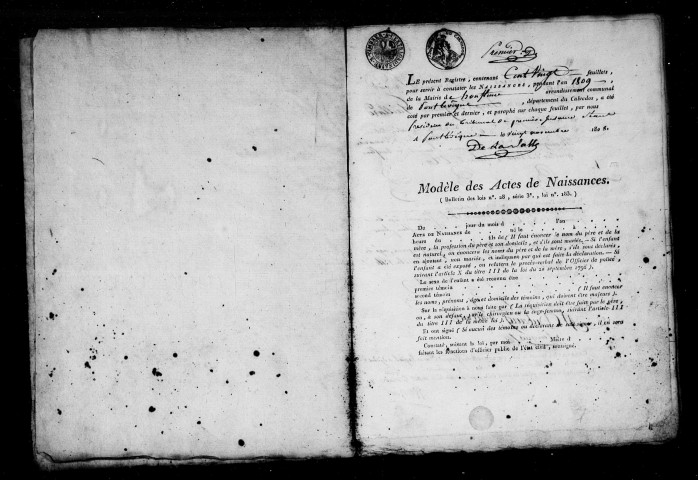 Premier
LE présent Registre, contenant Cent Vingt feuillets,
pour servir à constater les NAISSANCES, pendant l'an 1809
de la Mairie de honfleur arrondissement communal
de Pont Levêque, département du Calvados, a été
coté par premier et dernier, et paraphé sur chaque feuillet, par nous
Président du Tribunal de première Instance Séant
à Pont Levêque le Vingt novembre 1808.
De La Salle
Modèle des Actes de Naissances.
( Bulletin des lois n°. 28, série 3e., loi n°. 185. )
Du jour du mois d l'an
ACTE DE NAISSANCE de né le à
heure du fils de ( Il faut énoncer le nom du père et de la
mère, la profession du père et son domicile, et s'ils sont mariés. — Si l'enfant
est naturel, on énoncera les noms du père et de la mère, s'ils sont déclarés,
en ajoutant, non mariés, et indiquant par qui est faite la déclaration. — Si
l'enfant a été exposé, on relatera le procès-verbal de l'Officier de police,
suivant l'article X du titre III de la loi du 20 septembre 1792.)
Le sexe de l'enfant a été reconnu être
premier témoin ( Il faut énoncer
second témoin
les noms, prénoms, âges et domicile des témoins, qui doivent être majeurs. )
Sur la réquisition à nous faite par ( La réquisition doit être faite par le père,
ou, à son défaut, par le chirurgien ou la sage-femme, suivant l'article III
du titre III de la même loi ).
Et ont signé ( Si aucun des témoins ou déclarans ne sait signer, il en sera
fait mention.
Constaté, suivant la loi, par moi Maire d
faisant les fonctions d'officier public de l'état civil, soussigné.